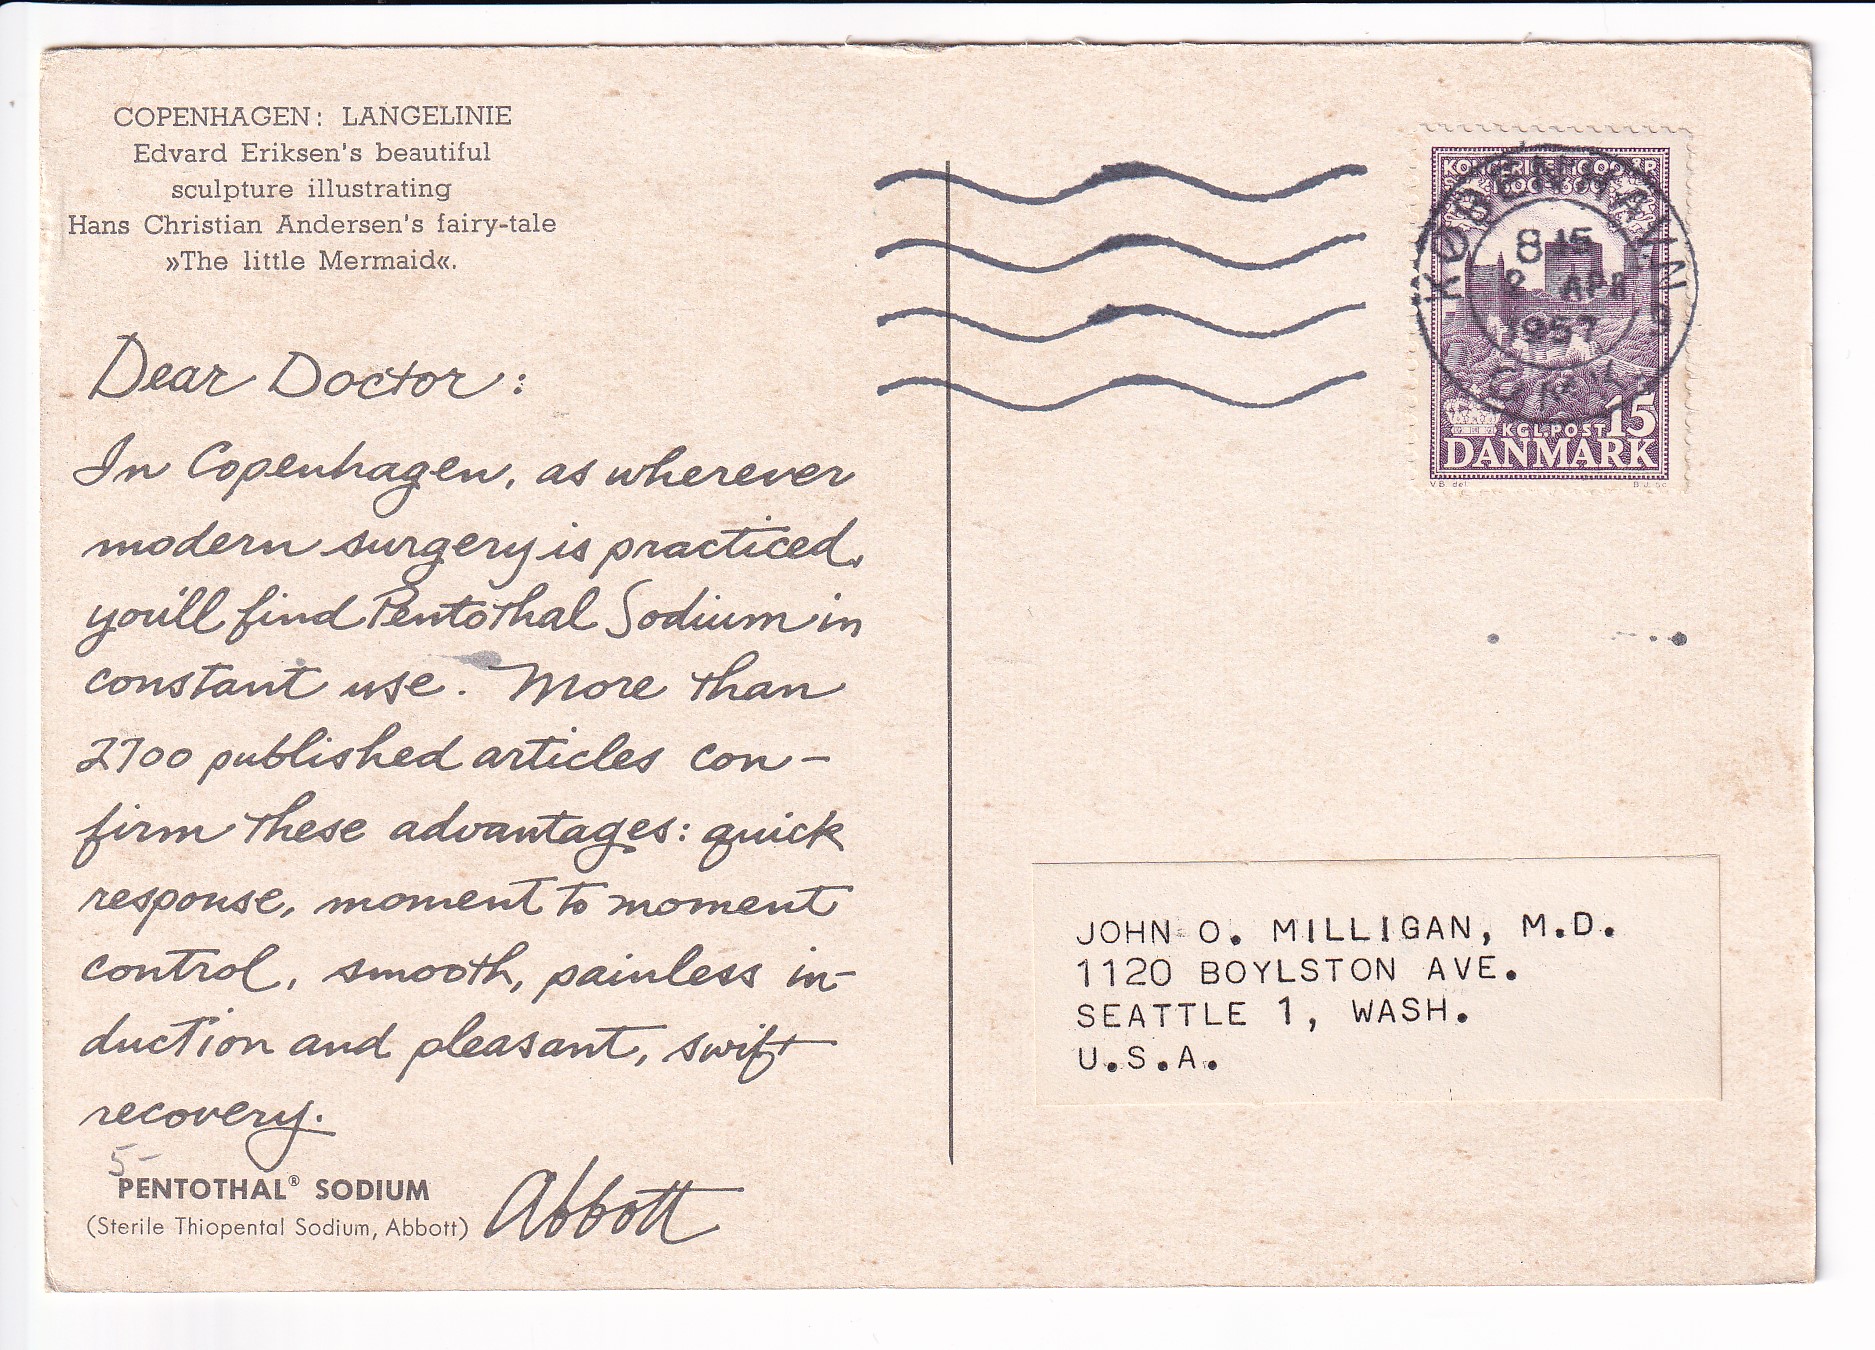 COPENHAGEN: LANGELINIE
Edvard Eriksen's beautiful
sculpture illustrating
Hans Christian Andersen's fairy-tale
»The little Mermaid«.
Dear Doctor:
In Copenhagen, as wherever
modern surgery is practiced,
you'll find Pentothal Sodium in
constant use. More than
2700 published articles con-
firm these advantages: quick
response, moment to moment
control, smooth, painless in-
duction and pleasant, swift
recovery.
5-
PENTOTHAL® SODIUM
(Sterile Thiopental Sodium, Abbott)
Abbott
KØBENHAVN
8 15
2 APR
1957
KGL.POST 15
DANMARK
JOHN O. MILLIGAN, M.D.
1120 BOYLSTON AVE.
SEATTLE 1, WASH.
U.S.A.